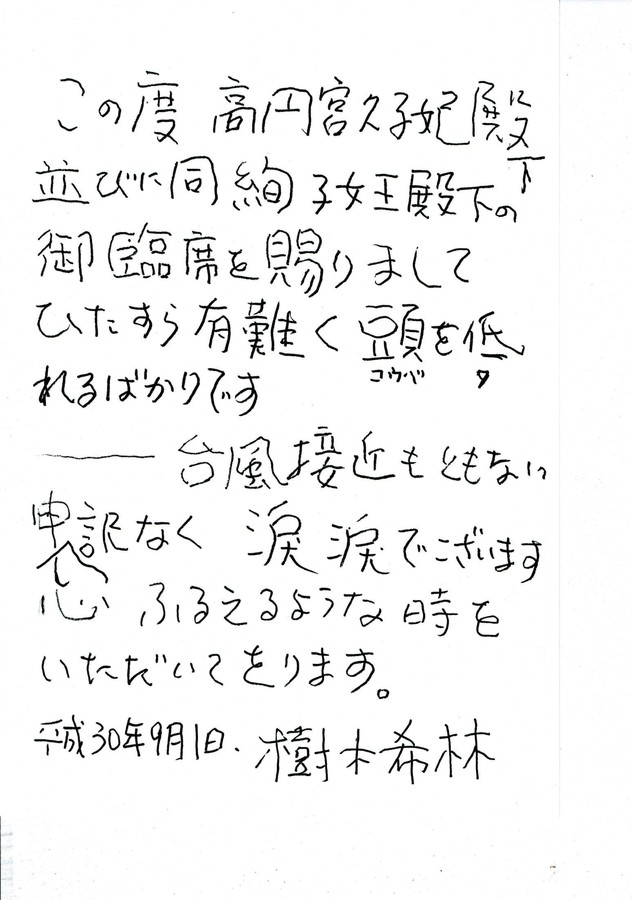 この度 高円宮久子妃殿下
並びに同絢子女王殿下の
御臨席を賜りまして
ひたすら有難く 頭を低
コウベ タ
れるばかりです
―― 台風接近もともない
申し訳なく 涙涙でございます
心 ふるえるような時を
いただいてをります。
平成30年9月1日、樹木希林